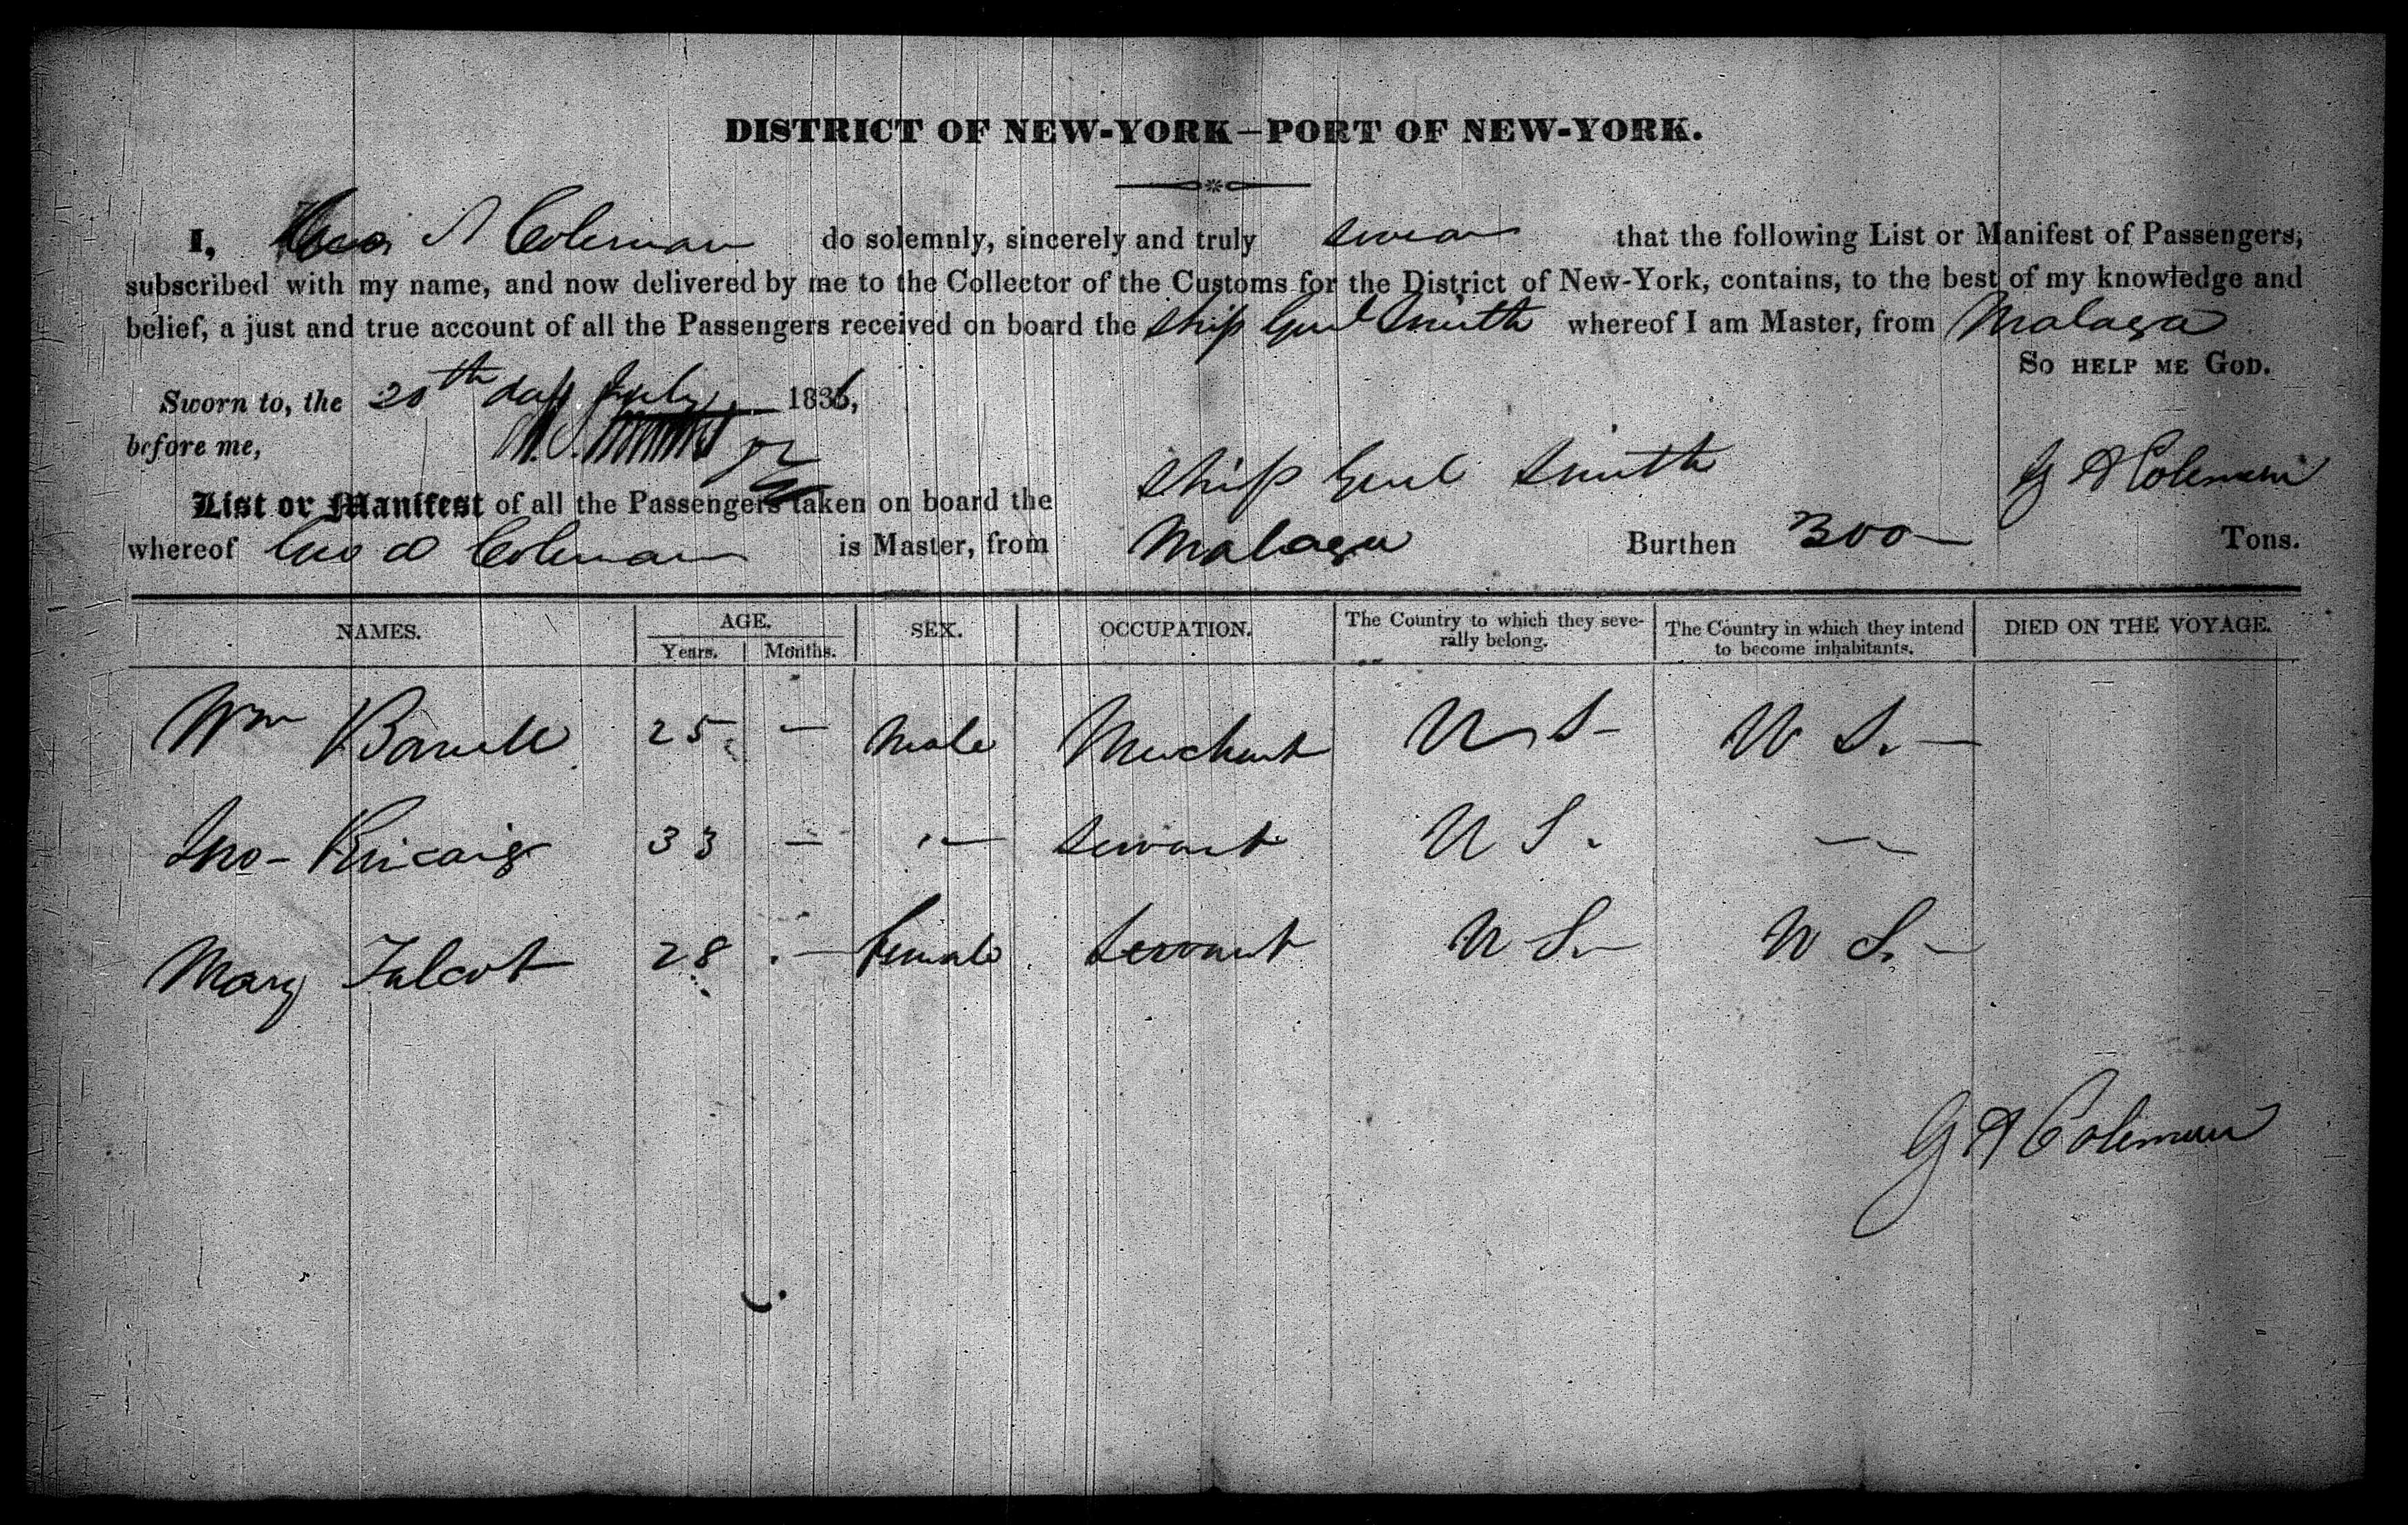 DISTRICT OF NEW-YORK—PORT OF NEW-YORK.
I, Geo A Coleman do solemnly, sincerely and truly swear that the following List or Manifest of Passengers,
subscribed with my name, and now delivered by me to the Collector of the Customs for the District of New-York, contains, to the best of my knowledge and
belief, a just and true account of all the Passengers received on board the Ship Genl Smith whereof I am Master, from Malaga
SO HELP ME GOD.
Sworn to, the 20th day July 1836,
before me,
G A Coleman
List or Manifest of all the Passengers taken on board the Ship Genl Smith
whereof Geo A Coleman is Master, from Malaga Burthen 300 — Tons.
NAMES. AGE. SEX. OCCUPATION. The Country to which they seve- The Country in which they intend DIED ON THE VOYAGE.
Years. Months. rally belong. to become inhabitants.
Wm 25 — Male Merchant U S — U S. —
Jno - 33 — " — Servant U S. — -
Mary Talcot 28 . — Female Servant U S. — U S. —
G A Coleman